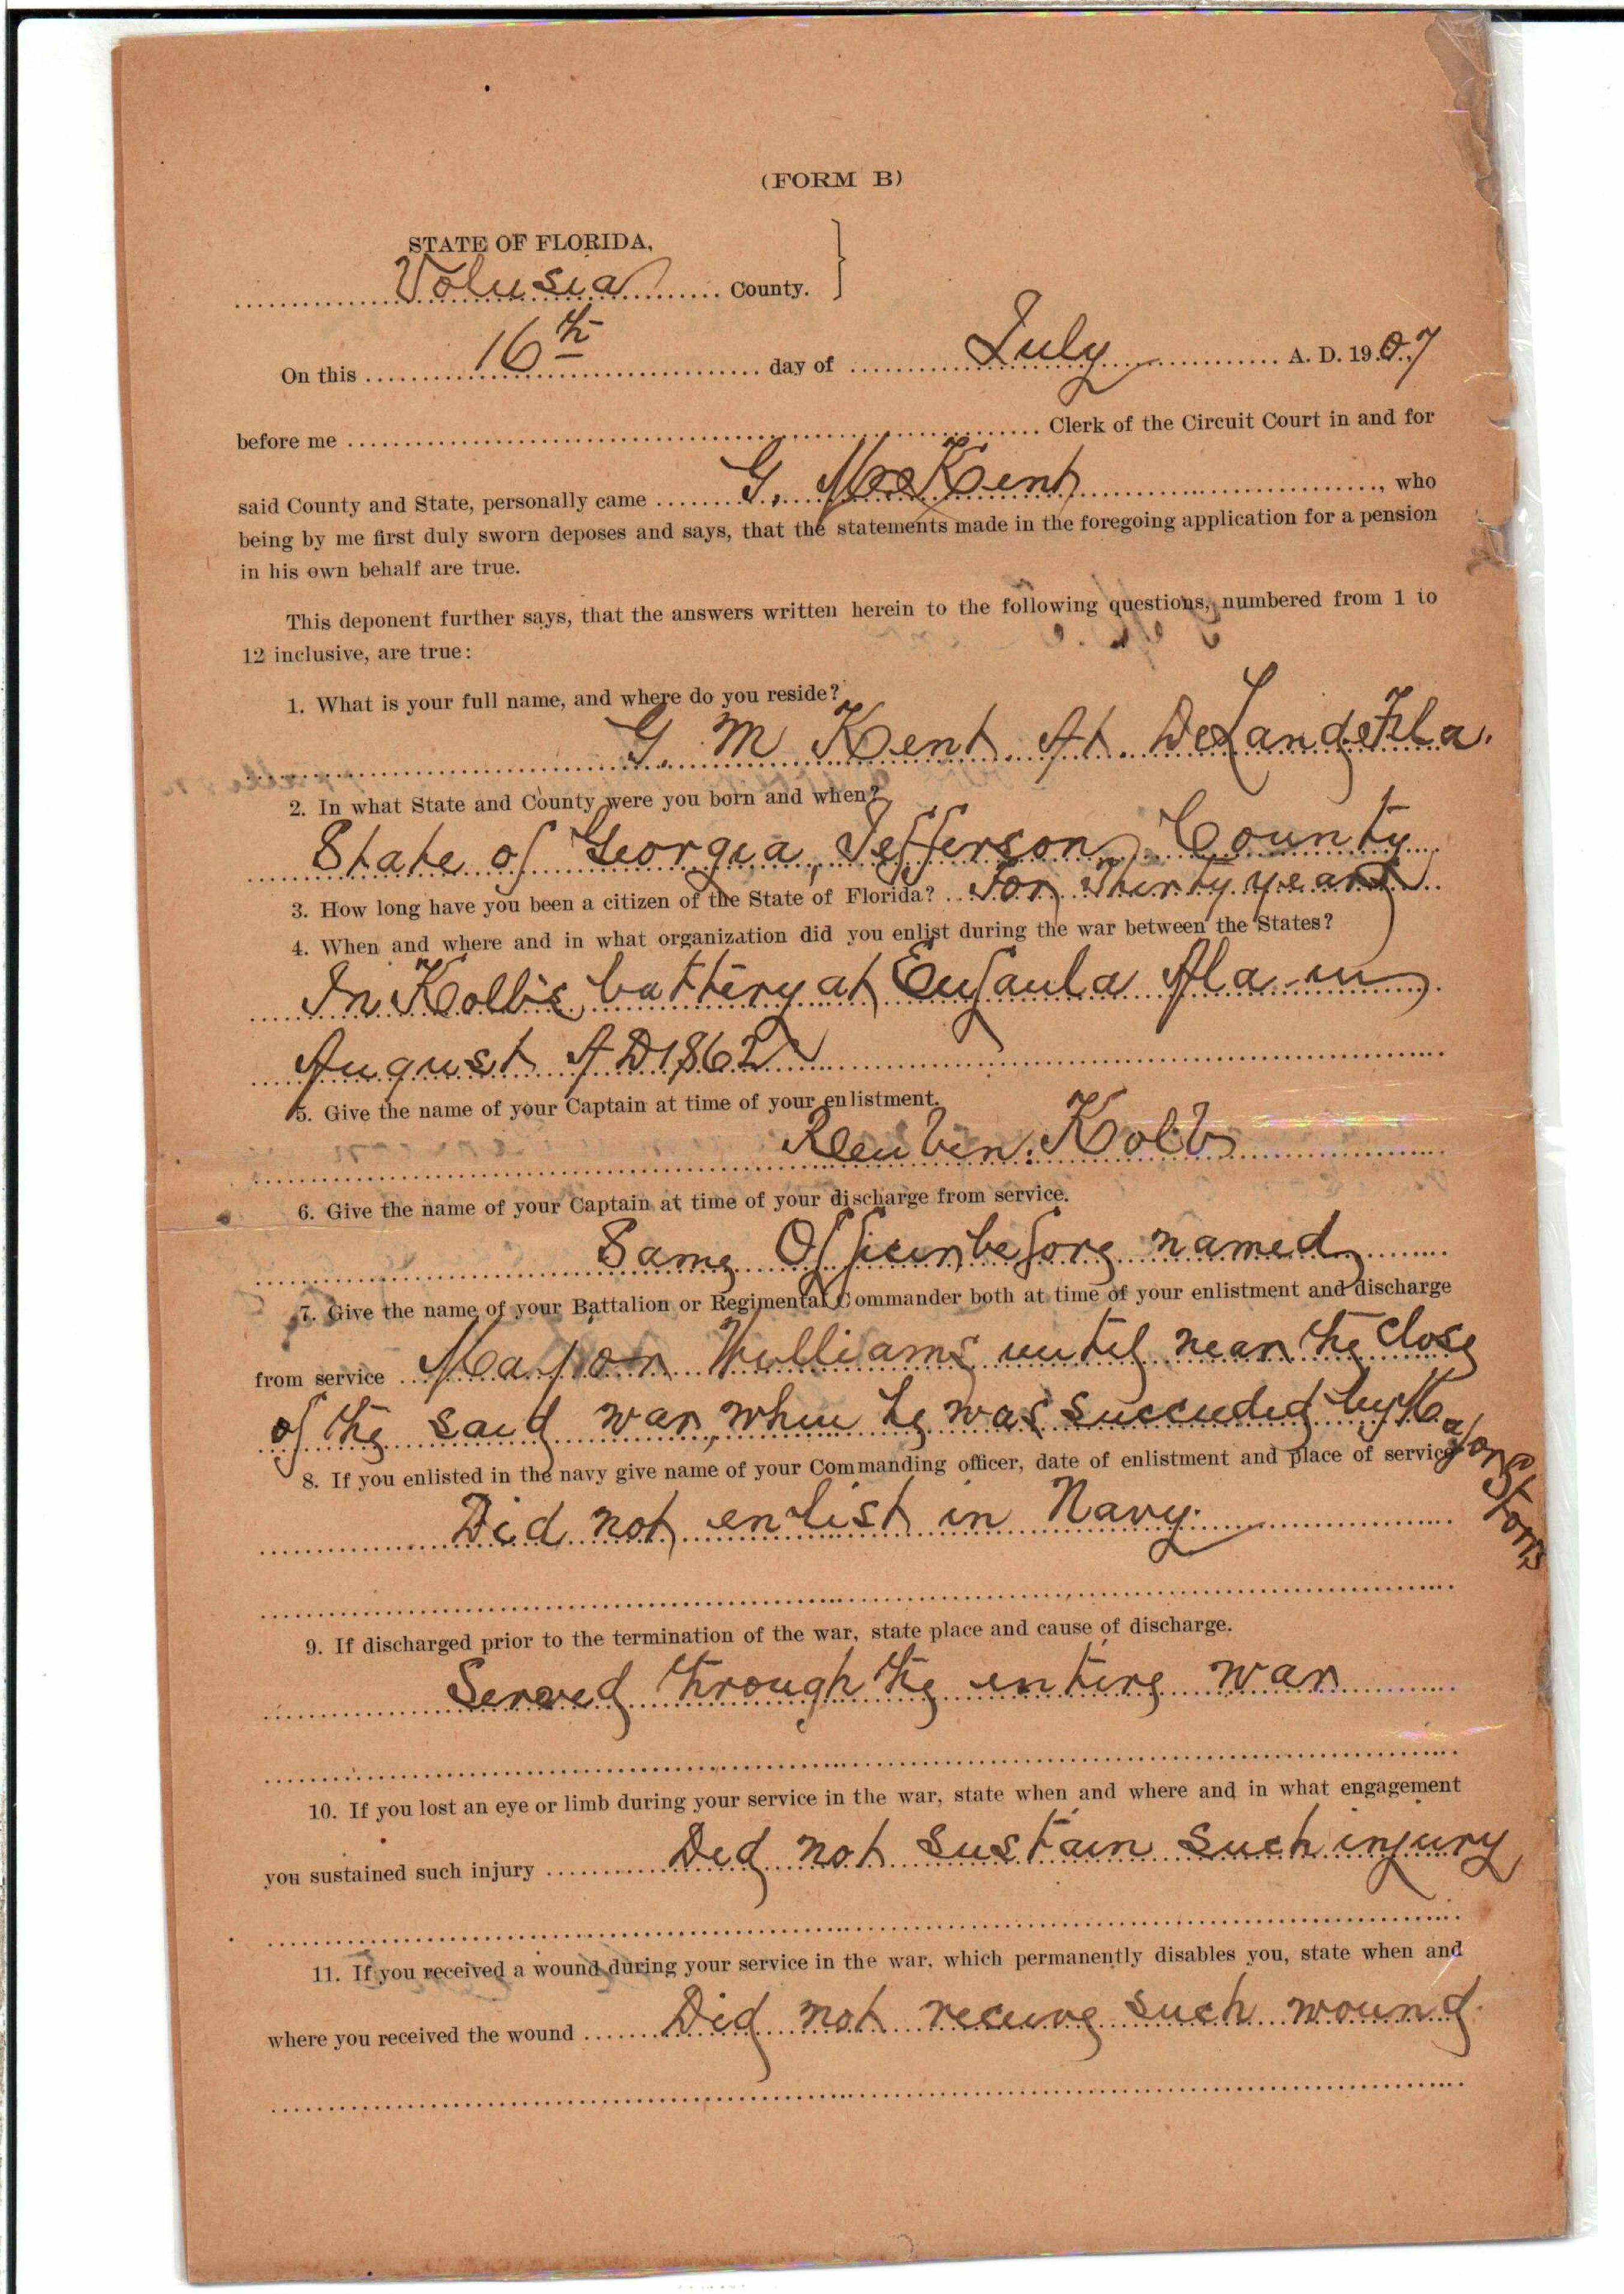 (FORM B)
STATE OF FLORIDA,
Volusia County.
On this 16th day of July A. D. 1907
before me Clerk of the Circuit Court in and for
said County and State, personally came G. M. Kent, who
being by me first duly sworn deposes and says, that the statements made in the foregoing application for a pension
in his own behalf are true.
This deponent further says, that the answers written herein to the following questions, numbered from 1 to
12 inclusive, are true:
1. What is your full name, and where do you reside?
G. M Kent. At. DeLand Fla.
2. In what State and County were you born and when?
State of Georgia, Jefferson County
3. How long have you been a citizen of the State of Florida? For Thirty years
4. When and where and in what organization did you enlist during the war between the States?
In Kolbs battery at Eufaula Ala in
August A D 1862
5. Give the name of your Captain at time of your enlistment.
Reuben Kolb
6. Give the name of your Captain at time of your discharge from service.
Same Officer before named
7. Give the name of your Battalion or Regimental Commander both at time of your enlistment and discharge
from service Major Williams until near the close
of the said war, when he was succeeded by Major
8. If you enlisted in the navy give name of your Commanding officer, date of enlistment and place of service
Did not enlist in Navy.
9. If discharged prior to the termination of the war, state place and cause of discharge.
Served through the entire war
10. If you lost an eye or limb during your service in the war, state when and where and in what engagement
you sustained such injury Did not sustain such injury
11. If you received a wound during your service in the war, which permanently disables you, state when and
where you received the wound Did not receive such wound.